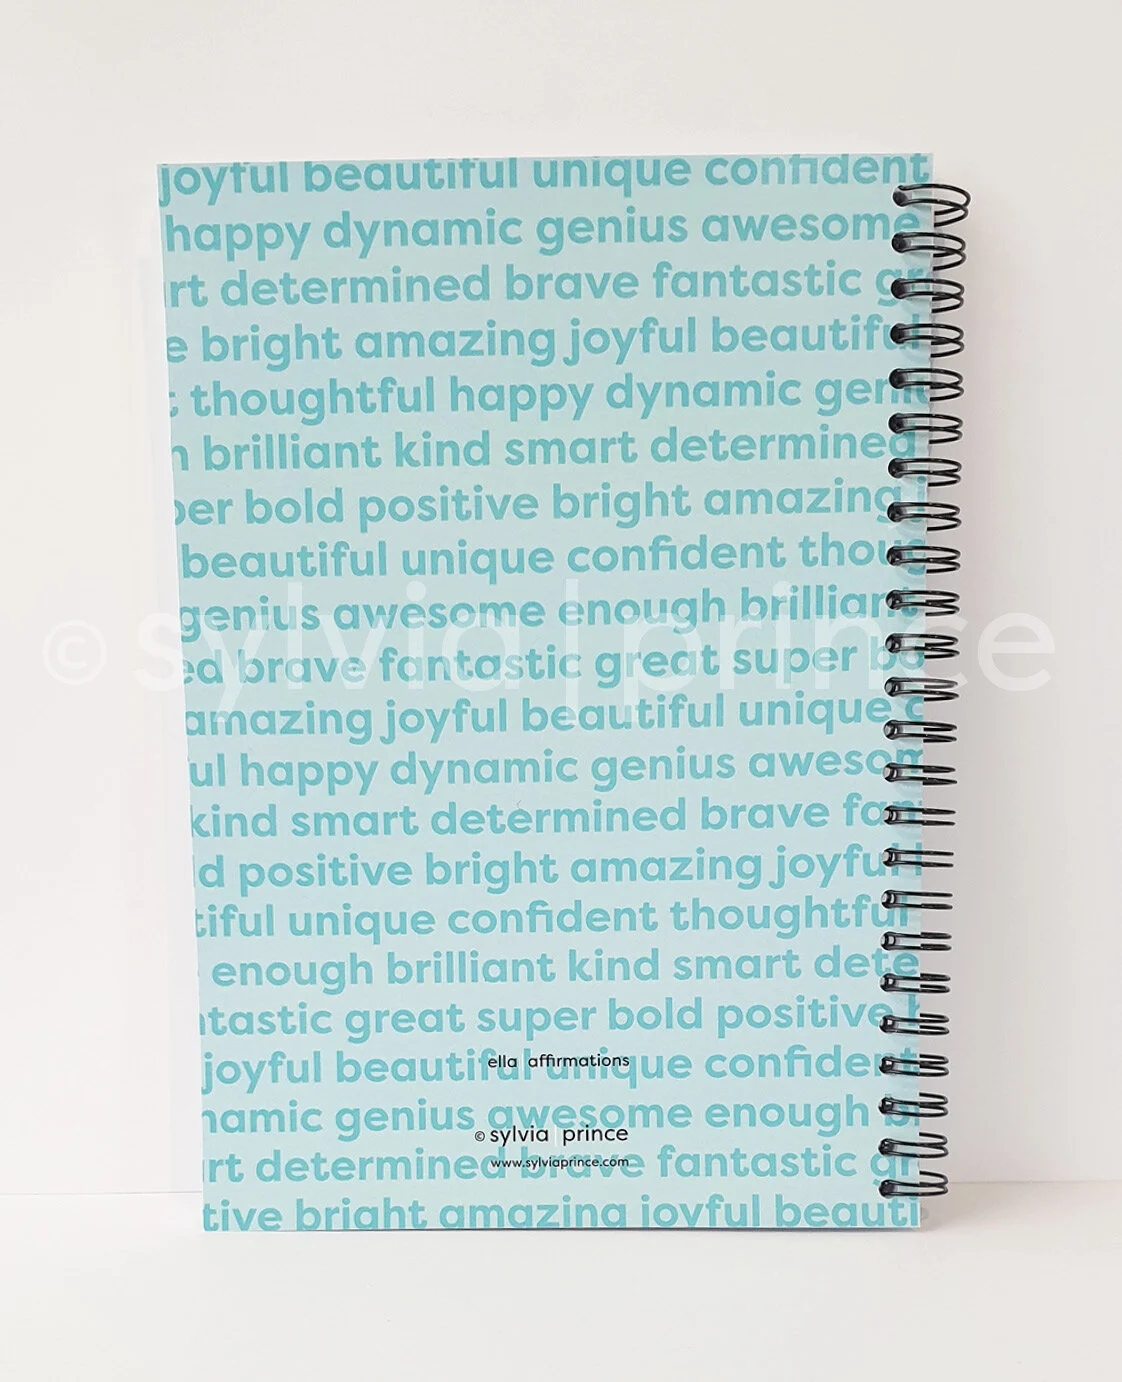 joyful beautiful unique confident
happy dynamic genius awesome
rt determined brave fantastic gr
e bright amazing joyful beautiful
t thoughtful happy dynamic geni
n brilliant kind smart determined
per bold positive bright amazing
beautiful unique confident thoug
genius awesome enough brilliant
ed brave fantastic great super bo
© sylvia | prince
amazing joyful beautiful unique c
ul happy dynamic genius awesom
kind smart determined brave fan
d positive bright amazing joyful
tiful unique confident thoughtful
enough brilliant kind smart dete
ntastic great super bold positive b
ella affirmations
joyful beautiful unique confident
namic genius awesome enough b
© sylvia | prince
www.sylviaprince.com
rt determined brave fantastic gr
tive bright amazing joyful beauti